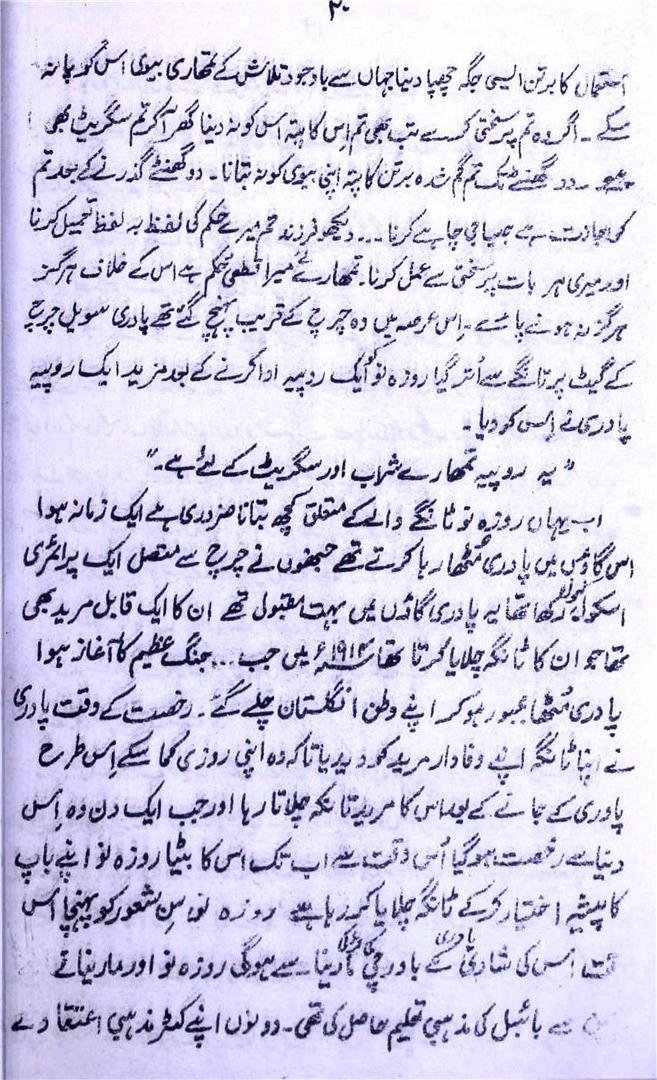 ۲۰
استعمال کا برتن ایسی جگہ چھپا دینا جہاں سے باوجود تلاش کے تمھاری بیوی اس کو پا نہ
سکے ۔ اگر وہ تم پر سختی کرے تب بھی تم اِس کا پتہ اس کو نہ دینا گھر آکر تم سگریٹ بھی
دو گھنٹے تک تم گم شدہ برتن کا پتہ اپنی بیوی کو نہ بتانا ۔ دو گھنٹے گذرنے کے بعد تم
کو اجازت ہے جیسا جی چاہے کرنا ... دیکھو فرزند تم میرے حکم کی لفظ بہ لفظ تعمیل کرنا
اور میری ہر بات پر سختی سے عمل کرنا۔ تمھارے لئے میرا قطعی حکم ہے اس کے خلاف ہرگز
ہرگز نہ ہونے پائے ۔ اِس عرصہ میں وہ چرچ کے قریب پہنچ گئے تھے پادری سویل چرچ
کے گیٹ پر تانگے سے اُتر گیا روزہ نو کو ایک روپیہ ادا کرنے کے بعد مزید ایک روپیہ
پادری نے اِس کو دیا ۔
" یہ روپیہ تمھارے شراب اور سگریٹ کے لئے ہے ۔ "
اب یہاں روزہ نو ٹانگے والے کے متعلق کچھ بتانا ضروری ہے ایک زمانہ ہوا
اس گاؤں میں پادری مُٹھا رہا کرتے تھے جنھوں نے چرچ سے متصل ایک پرائمری
اسکول کھول رکھا تھا یہ پادری گاؤں میں بہت مقبول تھے ان کا ایک قابل مرید بھی
تھا جو ان کا ٹانگہ چلایا کرتا تھا ۱۹۱۴ء میں جب ... جنگ عظیم کا آغاز ہوا
پادری مُٹھا مجبور ہو کر اپنے وطن انگلستان چلے گئے ۔ رخصت کے وقت پادری
نے اپنا ٹانگہ اپنے وفادار مرید کو دیدیا تا کہ وہ اپنی روزی کما سکے اِس طرح
پادری کے جانے کے بعد اس کا مرید تانگہ چلاتا رہا اور جب ایک دن وہ اِس
دنیا سے رخصت ہو گیا اُس وقت سے اب تک اس کا بیٹا روزہ نو اپنے باپ
کا پیشہ اختیار کر کے ٹانگہ چلایا کر رہا ہے روزہ نو سن شعور کو پہنچا اس
وقت اس کی شادی پادری کے باورچی کی لڑکی سے ہو گی روزہ نو اور مارینا نے
سے بائبل کی مذہبی تعلیم حاصل کی تھی ۔ دونوں اپنے کٹر مذہبی اعتقاد کے